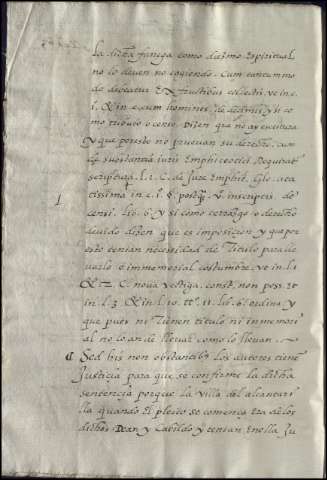 la dicha fanega como diezmo Espiritual
no lo deven no cogiendo. Cum tantummo
do debeatur Ex fructibus collectis ut in c.
1. & in c. cum homines de decimis, y si co
mo tributo o censo. Dizen que no ay escritura
y que por esto no pruevan su derecho. cum
de substantia iuris Emphiteotici Requirat
scriptura. l. 1. C. de Jure Emphit. Glo. ca
tissima in c. 1. §. V. inscriptis. de
censi. lib. 6. y si como terrazgo o derecho
devido dizen que es imposicion y que por
esto tenian necesidad de Titulo para lle
varlo o immemorial costumbre. ut in l. 1
& 2. C. nova vectiga. const. non poss. et
in l. 3. & in l. 10. tt.º 11. lib. 6. ordina. y
que pues ni Tienen titulo ni inmemori
al no lo an de llevar como lo llevan.
Sed his non obstantibus los autores tiene
Justicia para que se confirme la dicha
sentencia porque la villa del alcantari
lla quando El pleito se comença era de los
dichos Dean y Cabildo y tenian En ella Ju
1